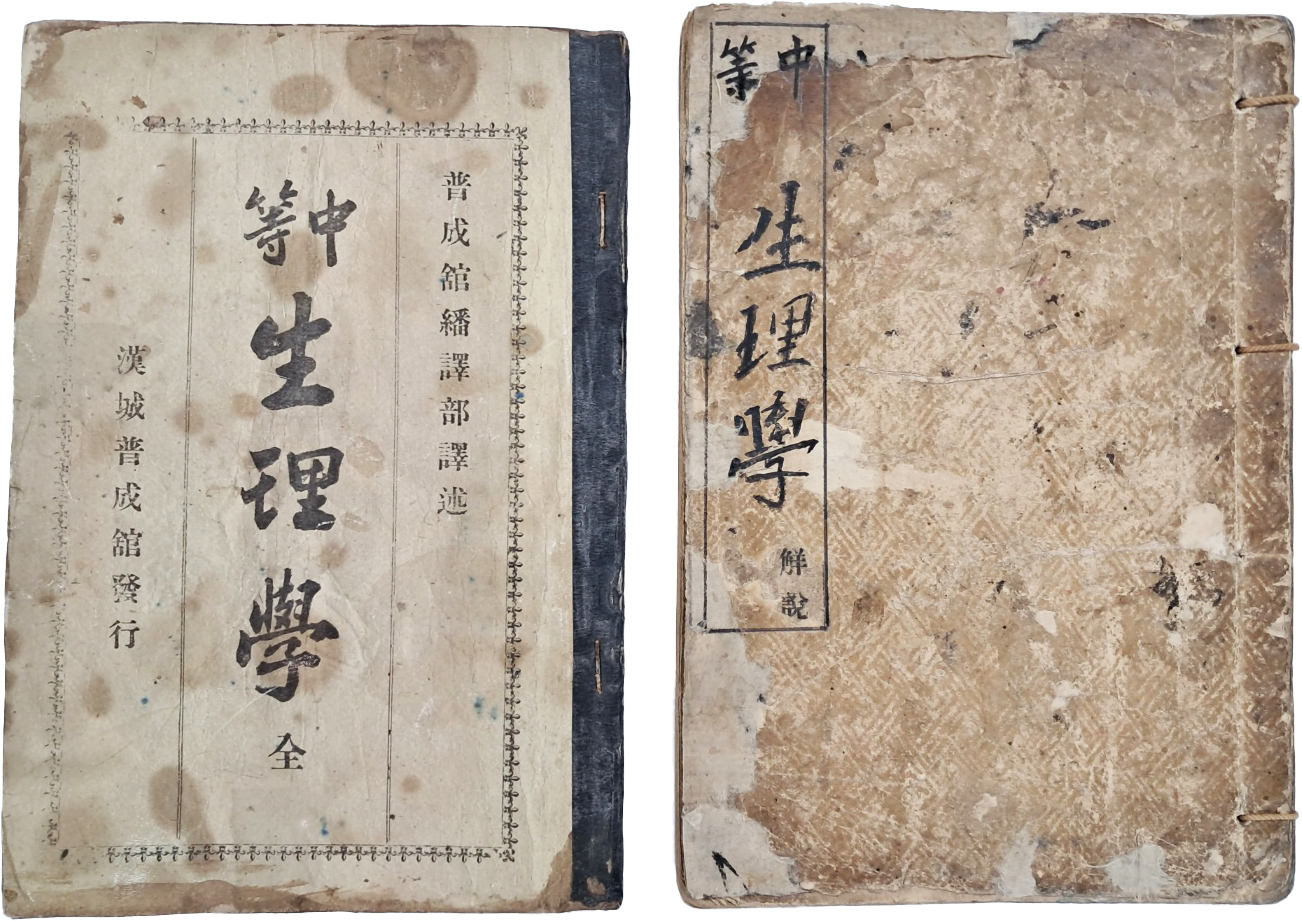 普成舘繙譯部譯述
中等
生理學
全
漢城普成舘發行
中等
生理學
解說